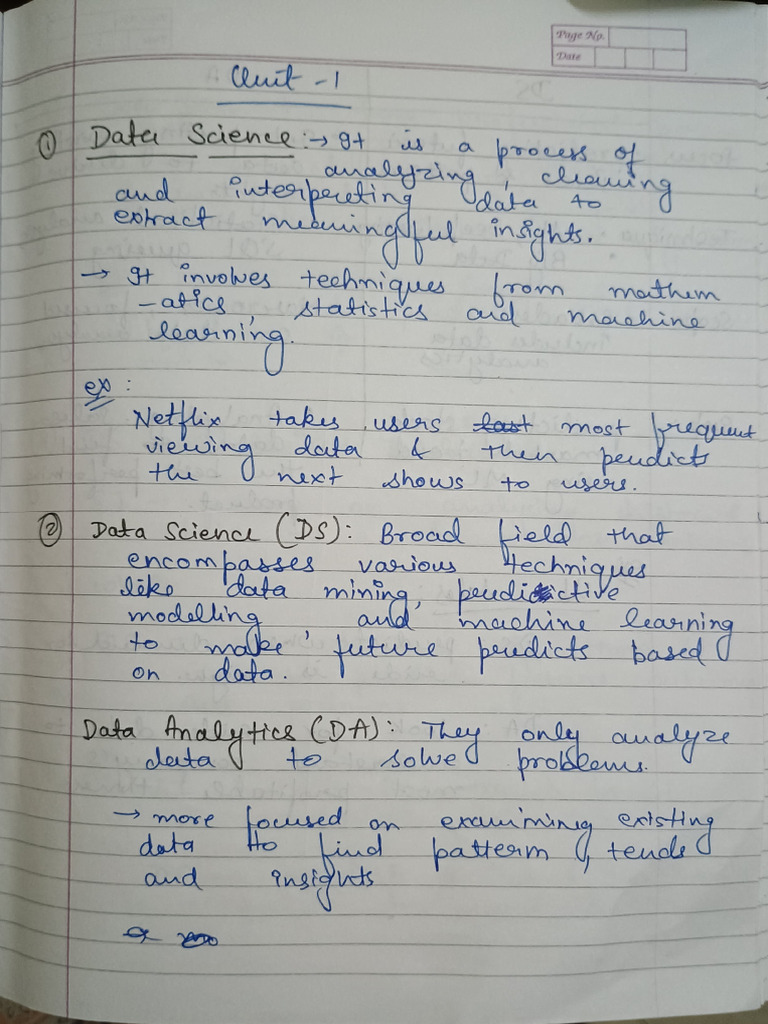 Page No.
Date
Unit - 1
① Data Science :→ It is a process of
analyzing, cleaning
and interpreting data to
extract meaningful insights.
→ It involves techniques from mathem
-atics, statistics and machine
learning.
ex :
Netflix takes users last most frequent
viewing data & then predicts
the next shows to users.
② Data Science (DS): Broad field that
encompasses various techniques
like data mining, predictive
modelling and machine learning
to make future predicts based
on data.
Data Analytics (DA): They only analyze
data to solve problems.
→ more focused on examining existing
data to find patterm, tends
and insights